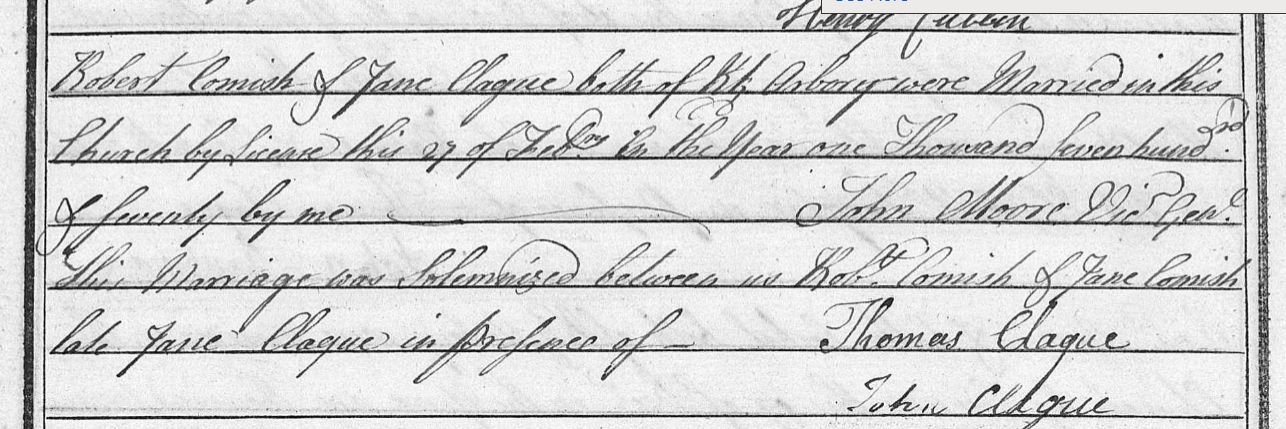 Henry Cubbin
Robert Comish & Jane Clague both of Kk Arbory were Married in this
Church by License this 27 of Febry. In the Year one Thousand seven hundrd.
& seventy by me John Moore Vicr Genl.
This Marriage was Solemnized between us Robt. Comish & Jane Comish
late Jane Clague in presence of –
Thomas Clague
John Clague